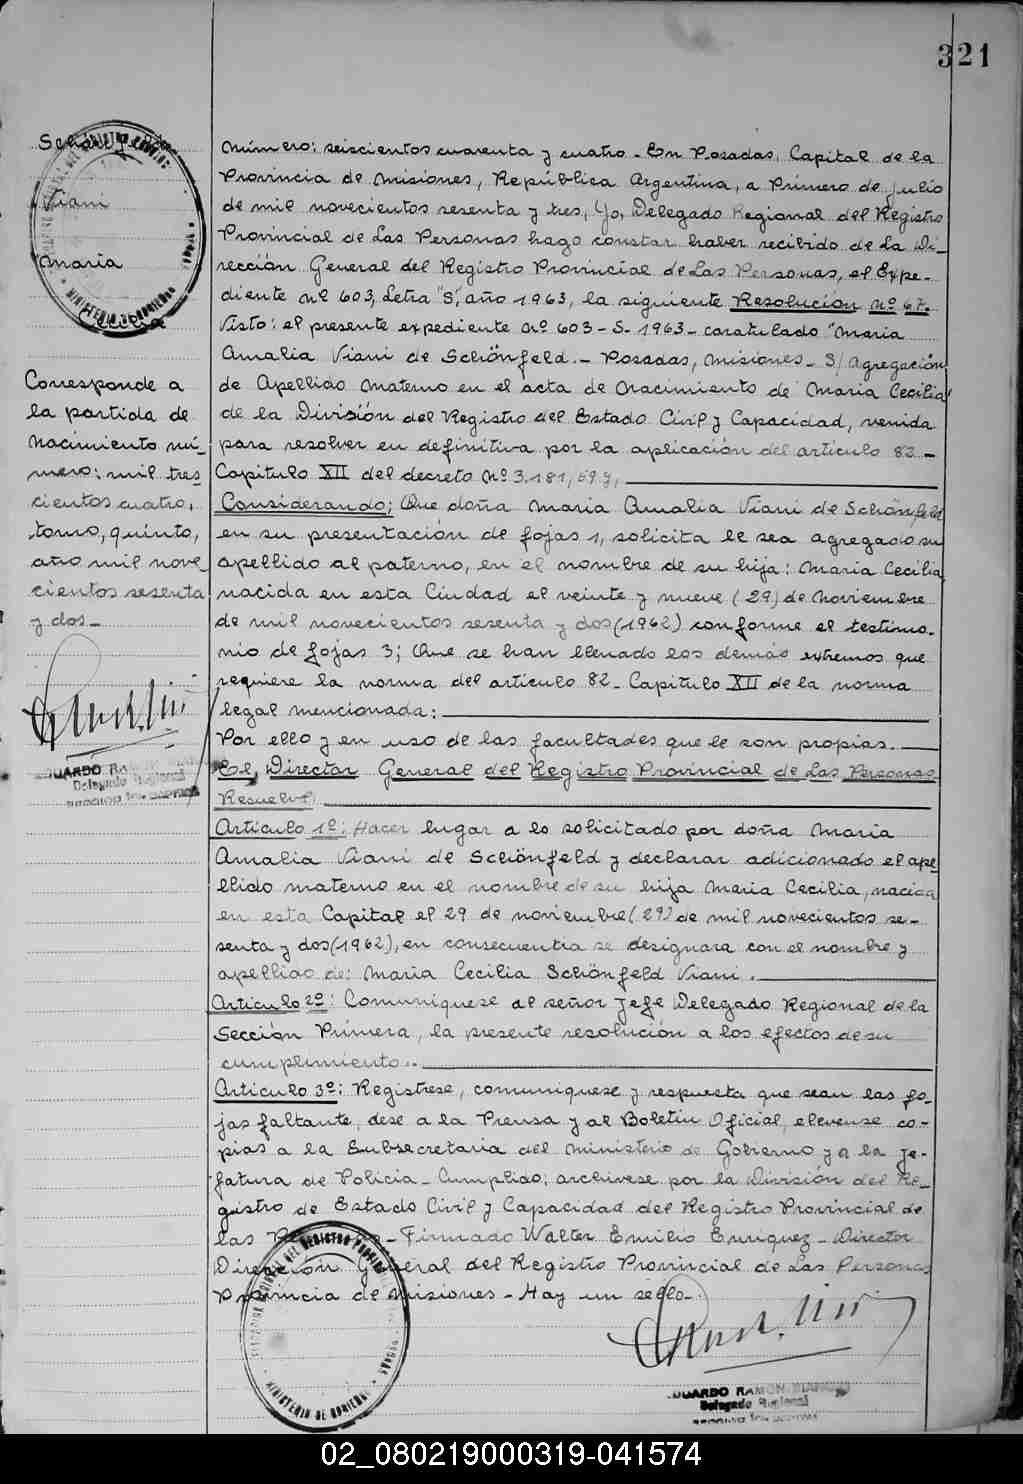 321
Schönfeld
Viani
Maria
Cecilia
Corresponde a
la partida de
nacimiento nú-
mero: mil tres
cientos cuatro,
tomo, quinto,
año mil nove
cientos sesenta
y dos_
EDUARDO RAMON
Delegado Regional
Número: seiscientos cuarenta y cuatro - En Posadas, Capital de la
Provincia de Misiones, República Argentina, a Primero de Julio
de mil novecientos sesenta y tres, Yo, Delegado Regional del Registro
Provincial de Las Personas hago constar haber recibido de La Di-
rección General del Registro Provincial de Las Personas, el Expe-
diente nº 603, Letra "S", año 1963, la siguiente Resolución nº 67.
Visto: el presente expediente nº 603-S-1963- caratulado "Maria
Amalia Viani de Schönfeld.- Posadas, Misiones- S/ Agregación
de Apellido Materno en el acta de Nacimiento de Maria Cecilia
de la División del Registro del Estado Civil y Capacidad, venida
para resolver en definitiva por la aplicación del artículo 82-
Capitulo XII del decreto nº 3.181,
Considerando: Que doña Maria Amalia Viani de Schönfeld
en su presentación de fojas 1, solicita le sea agregado su
apellido al paterno, en el nombre de su hija: Maria Cecilia,
nacida en esta Ciudad el veinte y nueve (29) de Noviembre
de mil novecientos sesenta y dos (1962) conforme el testimo-
nio de fojas 3; Que se han llenado los demás extremos que
requiere la norma del artículo 82- Capítulo XII de la norma
legal mencionada:
Por ello y en uso de las facultades que le son propias.
El, Director General del Registro Provincial de Las Personas
Resuelve:
Artículo 1º: Hacer lugar a lo solicitado por doña Maria
Amalia Viani de Schönfeld y declarar adicionado el ape-
llido materno en el nombre de su hija Maria Cecilia, nacida
en esta Capital el 29 de noviembre (29) de mil novecientos se-
senta y dos (1962), en consecuentia se designara con el nombre y
apellido de: Maria Cecilia Schönfeld Viani.
Artículo 2º: Comuníquese al señor Jefe Delegado Regional de la
Sección Primera, la presente resolución a los efectos de su
cumplimiento..
Artículo 3º: Registrese, comuníquese y respuesta que sean las fo-
jas faltante, dese a la Prensa y al Boletin Oficial, elevense co-
pias a la Subsecretaria del Ministerio de Gobierno y a la Je-
fatura de Policia_ Cumplido; archivese por la División del Re-
gistro de Estado Civil y Capacidad del Registro Provincial de
las Personas - Firmado Walter Emilio Enriquez - Director
Dirección General del Registro Provincial de Las Personas
Provincia de Misiones - Hay un sello-.
MINISTERIO DE GOBIERNO
EDUARDO RAMON
Delegado Regional
02_080219000319-041574